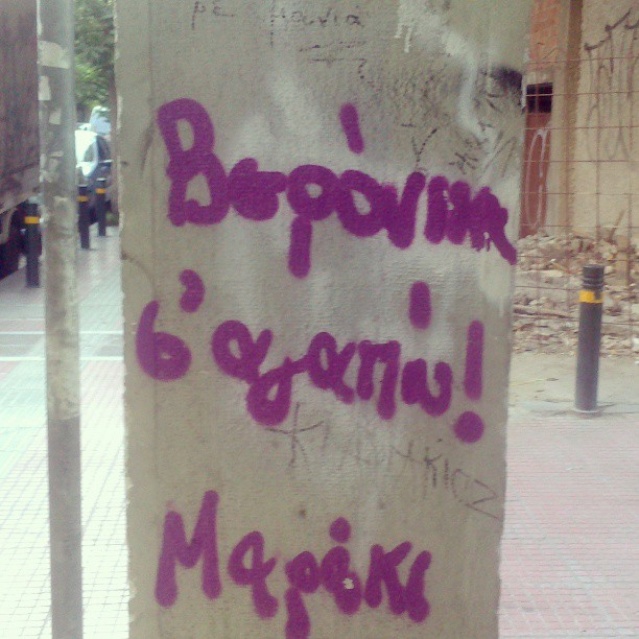 με μανία
Βερόνικα
σ'αγαπώ!
Μαράκι